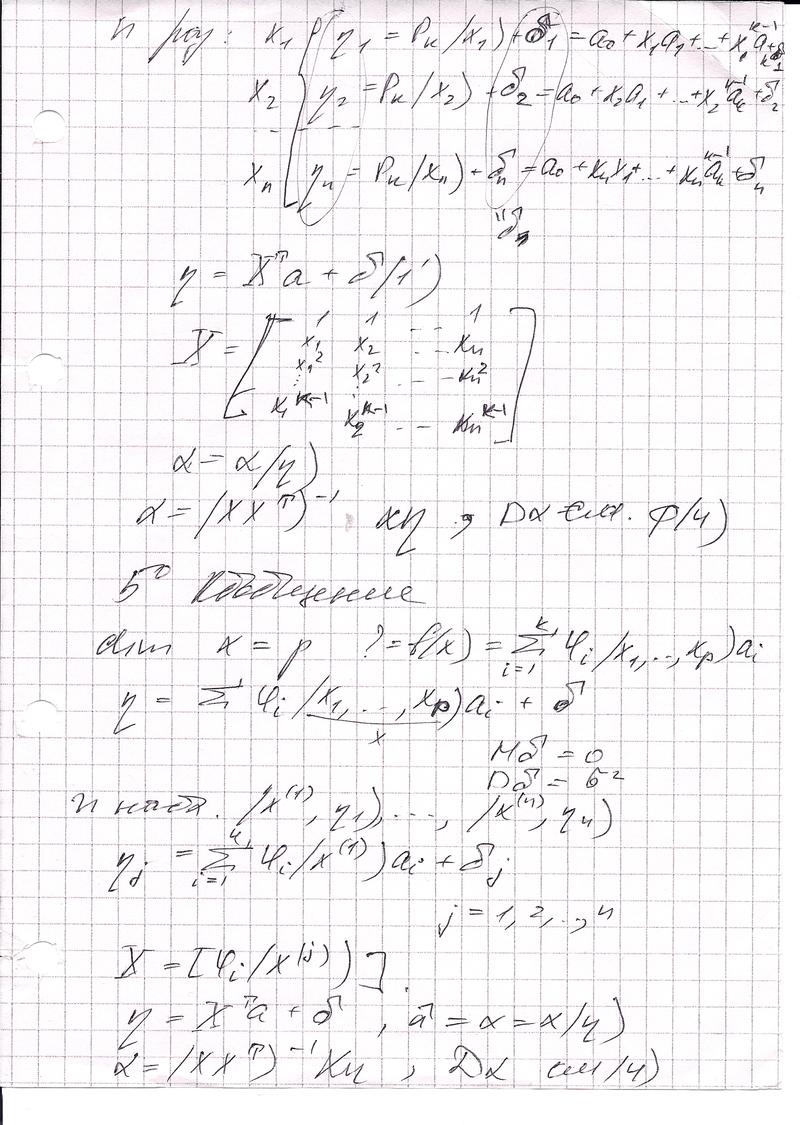 n раз: x₁ { η₁ = Pₖ(x₁) + δ₁ = a₀ + x₁a₁ + ... + x₁ᵏ⁻¹aₖ₋₁ + δ₁
x₂ η₂ = Pₖ(x₂) + δ₂ = a₀ + x₂a₁ + ... + x₂ᵏ⁻¹aₖ + δ₂
xₙ ηₙ = Pₖ(xₙ) + δₙ = a₀ + xₙx₁ + ... + xₙᵏ⁻¹aₖ + δₙ
"δₙ
η = Xᵀa + δ (1')
1 1 ... 1
X = [ x₁ x₂ ... xₙ ]
x₁² x₂² ... xₙ²
x₁ᵏ⁻¹ x₂ᵏ⁻¹ ... xₙᵏ⁻¹
α = α(η)
α = (XXᵀ)⁻¹ Xη , Dα см. ф(4)
5° Обобщение
dim x = p ? = f(x) = Σᵢ₌₁ᵏ φᵢ(x₁, ..., xₚ)aᵢ
η = Σ φᵢ(x₁, ..., xₚ)aᵢ + δ
x
Mδ = 0
Dδ = σ²
n набл. (x⁽¹⁾, η₁), ..., (x⁽ⁿ⁾, ηₙ)
ηⱼ = Σᵢ₌₁ᵏ φᵢ(x⁽¹⁾)aᵢ + δⱼ
j = 1, 2, .., n
X = [φᵢ(x⁽ʲ⁾)]
η = Xᵀa + δ , â = α = α(η)
α = (XXᵀ)⁻¹Xη , Dα см(4)